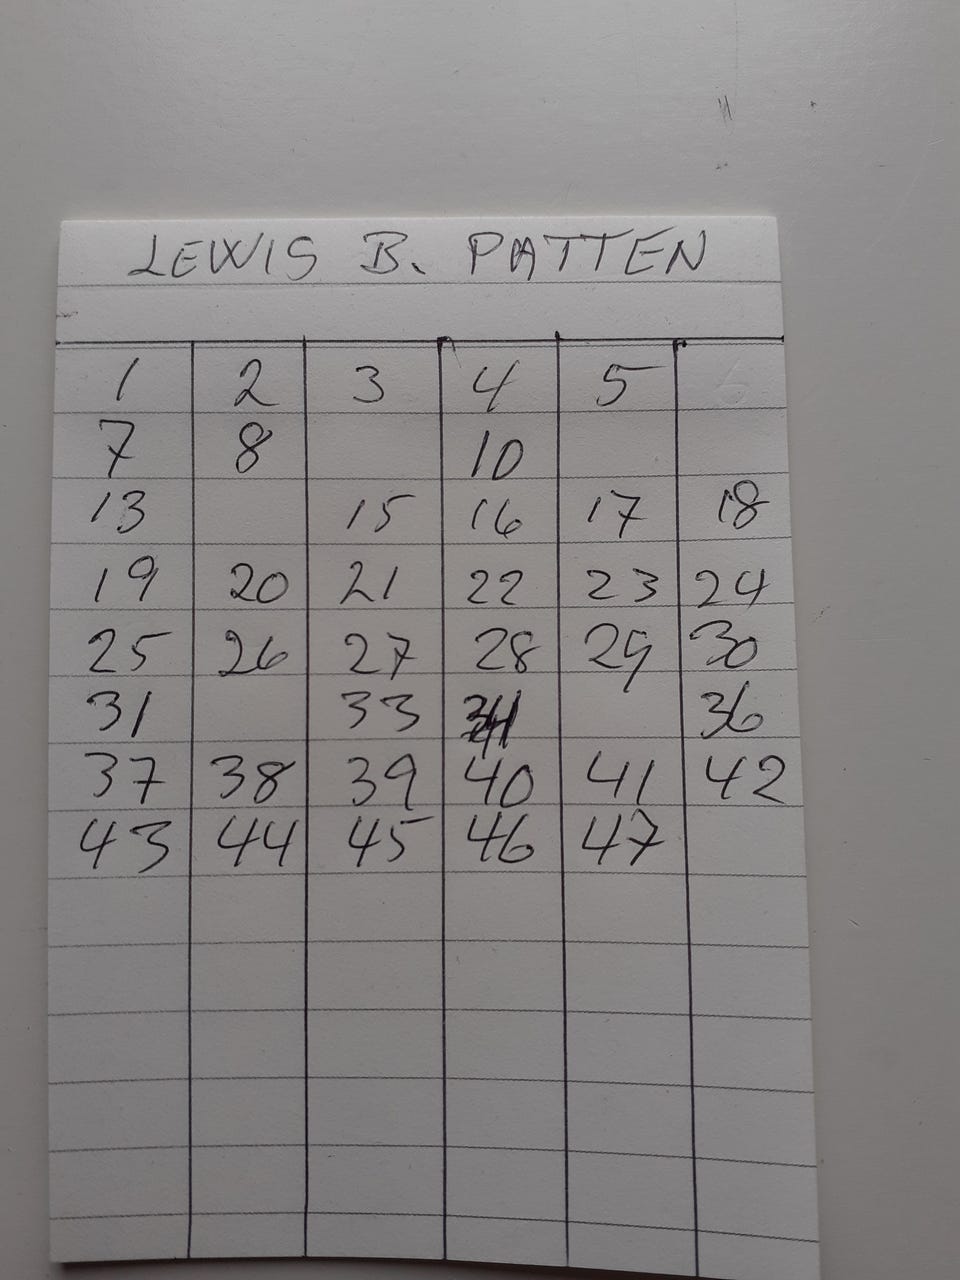 LEWIS B. PATTEN
1 2 3 4 5 6
7 8 10
13 15 16 17 18
19 20 21 22 23 24
25 26 27 28 29 30
31 33 34 36
37 38 39 40 41 42
43 44 45 46 47